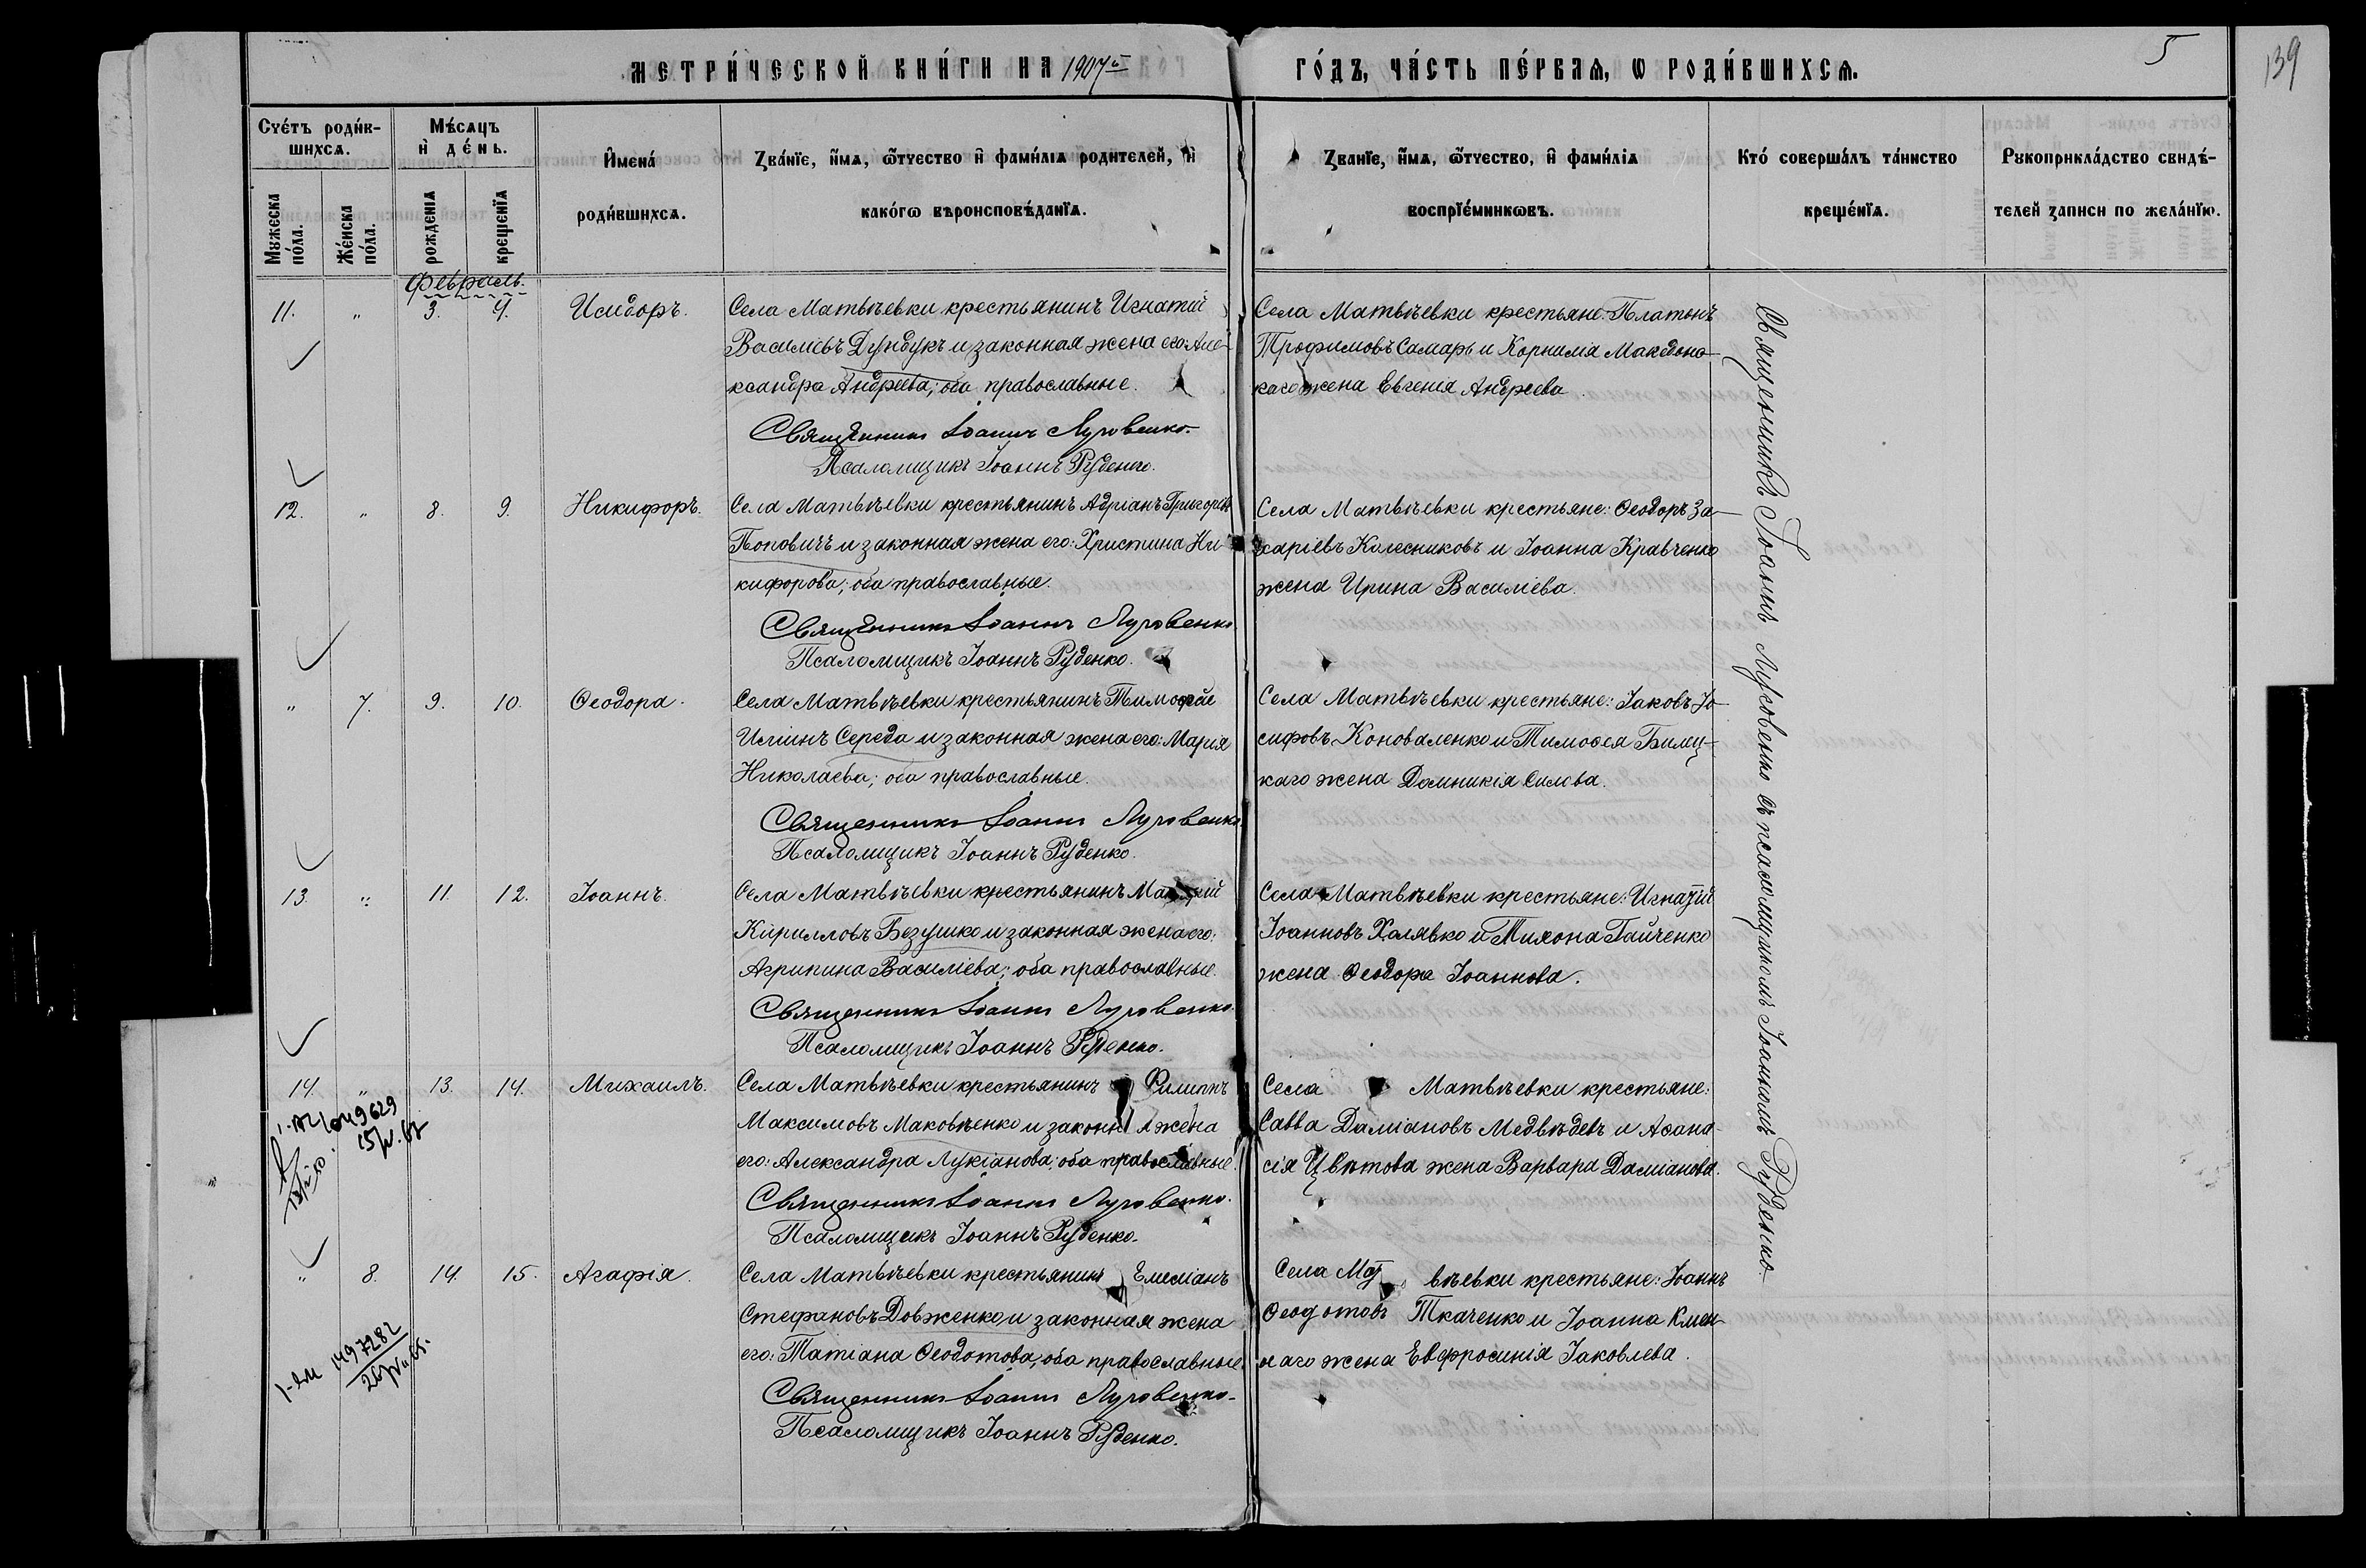 МЕТРИ́ЧЕСКОЙ КНИ́ГИ НА 1907й ГО́ДЪ, ЧА́СТЬ ПЕ́РВАЯ, Ѡ РОДИ́ВШИХСѦ.
5
139
Счетъ роди́в-
шихсѧ.
Мѣ́сѧцъ
и҆ де́нь.
И҆мена́
роди́вшихсѧ.
Зва́нїе, и҆́мѧ, ѻ҆́тчество и҆ фами́лїѧ родителей, и҆
како́гѡ вѣроисповѣ́данїѧ.
Званїе, и҆́мѧ, ѻ҆́тчество, и҆ фами́лїѧ
воспрїе́мникѡвъ.
Кто́ соверша́лъ та́инство
креще́нїѧ.
Рукоприкла́дство свидѣ́-
телей записи по жела́нїю.
Мужеска
по́ла.
Же́нска
по́ла.
рожденїѧ
крещенїѧ
Февраль.
11. " 3. 4. Исидоръ.
Села Матвѣевки крестьянинъ Игнатій
Василіевъ Дундукъ и законная жена его: Але-
ксандра Андреева; оба православные.
Священникъ Іоаннъ Луговенко.
Псаломщикъ Іоаннъ Руденко.
Села Матвѣевки крестьяне: Платонъ
Трофимовъ Самарь и Корнилія Македонс-
каго жена Евгенія Андреева.
12. " 8. 9. Никифоръ.
Села Матвѣевки крестьянинъ Адріанъ Григоріев
Поповичъ и законная жена его: Христина Ни-
кифорова; оба православные.
Священникъ Іоаннъ Луговенко.
Псаломщикъ Іоаннъ Руденко.
Села Матвѣевки крестьяне: Ѳеодоръ За-
харіевъ Колесниковъ и Іоанна Кравченко
жена Ирина Василіева.
" 7. 9. 10. Ѳеодора.
Села Матвѣевки крестьянинъ Тимоѳей
Иліинъ Середа и законная жена его: Марія
Николаева; оба православные.
Священникъ Іоаннъ Луговенко.
Псаломщикъ Іоаннъ Руденко.
Села Матвѣевки крестьяне: Іаковъ Іо-
сифовъ Коноваленко и Тимоѳея Билец-
каго жена Домникія Силова.
13. " 11. 12. Іоаннъ.
Села Матвѣевки крестьянинъ
Кирилловъ Безушко и законная жена его:
Агрипина Василіева; оба православные.
Священникъ Іоаннъ Луговенко.
Псаломщикъ Іоаннъ Руденко.
Села Матвѣевки крестьяне: Игнатій
Іоанновъ Халявко и Тихона Гайченко
жена Ѳеодора Іоаннова.
14. " 13. 14. Михаилъ.
Села Матвѣевки крестьянинъ Филиппъ
Максимовъ Маковѣенко и законн я жена
его: Александра Лукіанова; оба православные.
Священникъ Іоаннъ Луговенко.
Псаломщикъ Іоаннъ Руденко.
Села Матвѣевки крестьяне:
Савва Даміановъ Медвѣдевъ и Аѳана-
сія Цвѣтова жена Варвара Даміанова.
" 8. 14. 15. Агафія.
Села Матвѣевки крестьянинъ Емеліанъ
Стефановъ Довженко и законная жена
его: Татіана Ѳеодотова; оба православные.
Священникъ Іоаннъ Луговенко.
Псаломщикъ Іоаннъ Руденко.
1497282
Села Мат вѣевки крестьяне: Іоаннъ
Ѳеодотовъ Ткаченко и Іоанна
жена Евфросинія Іаковлева.
Священникъ Іоаннъ Луговенко съ псаломщикомъ Іоанномъ Руденко.